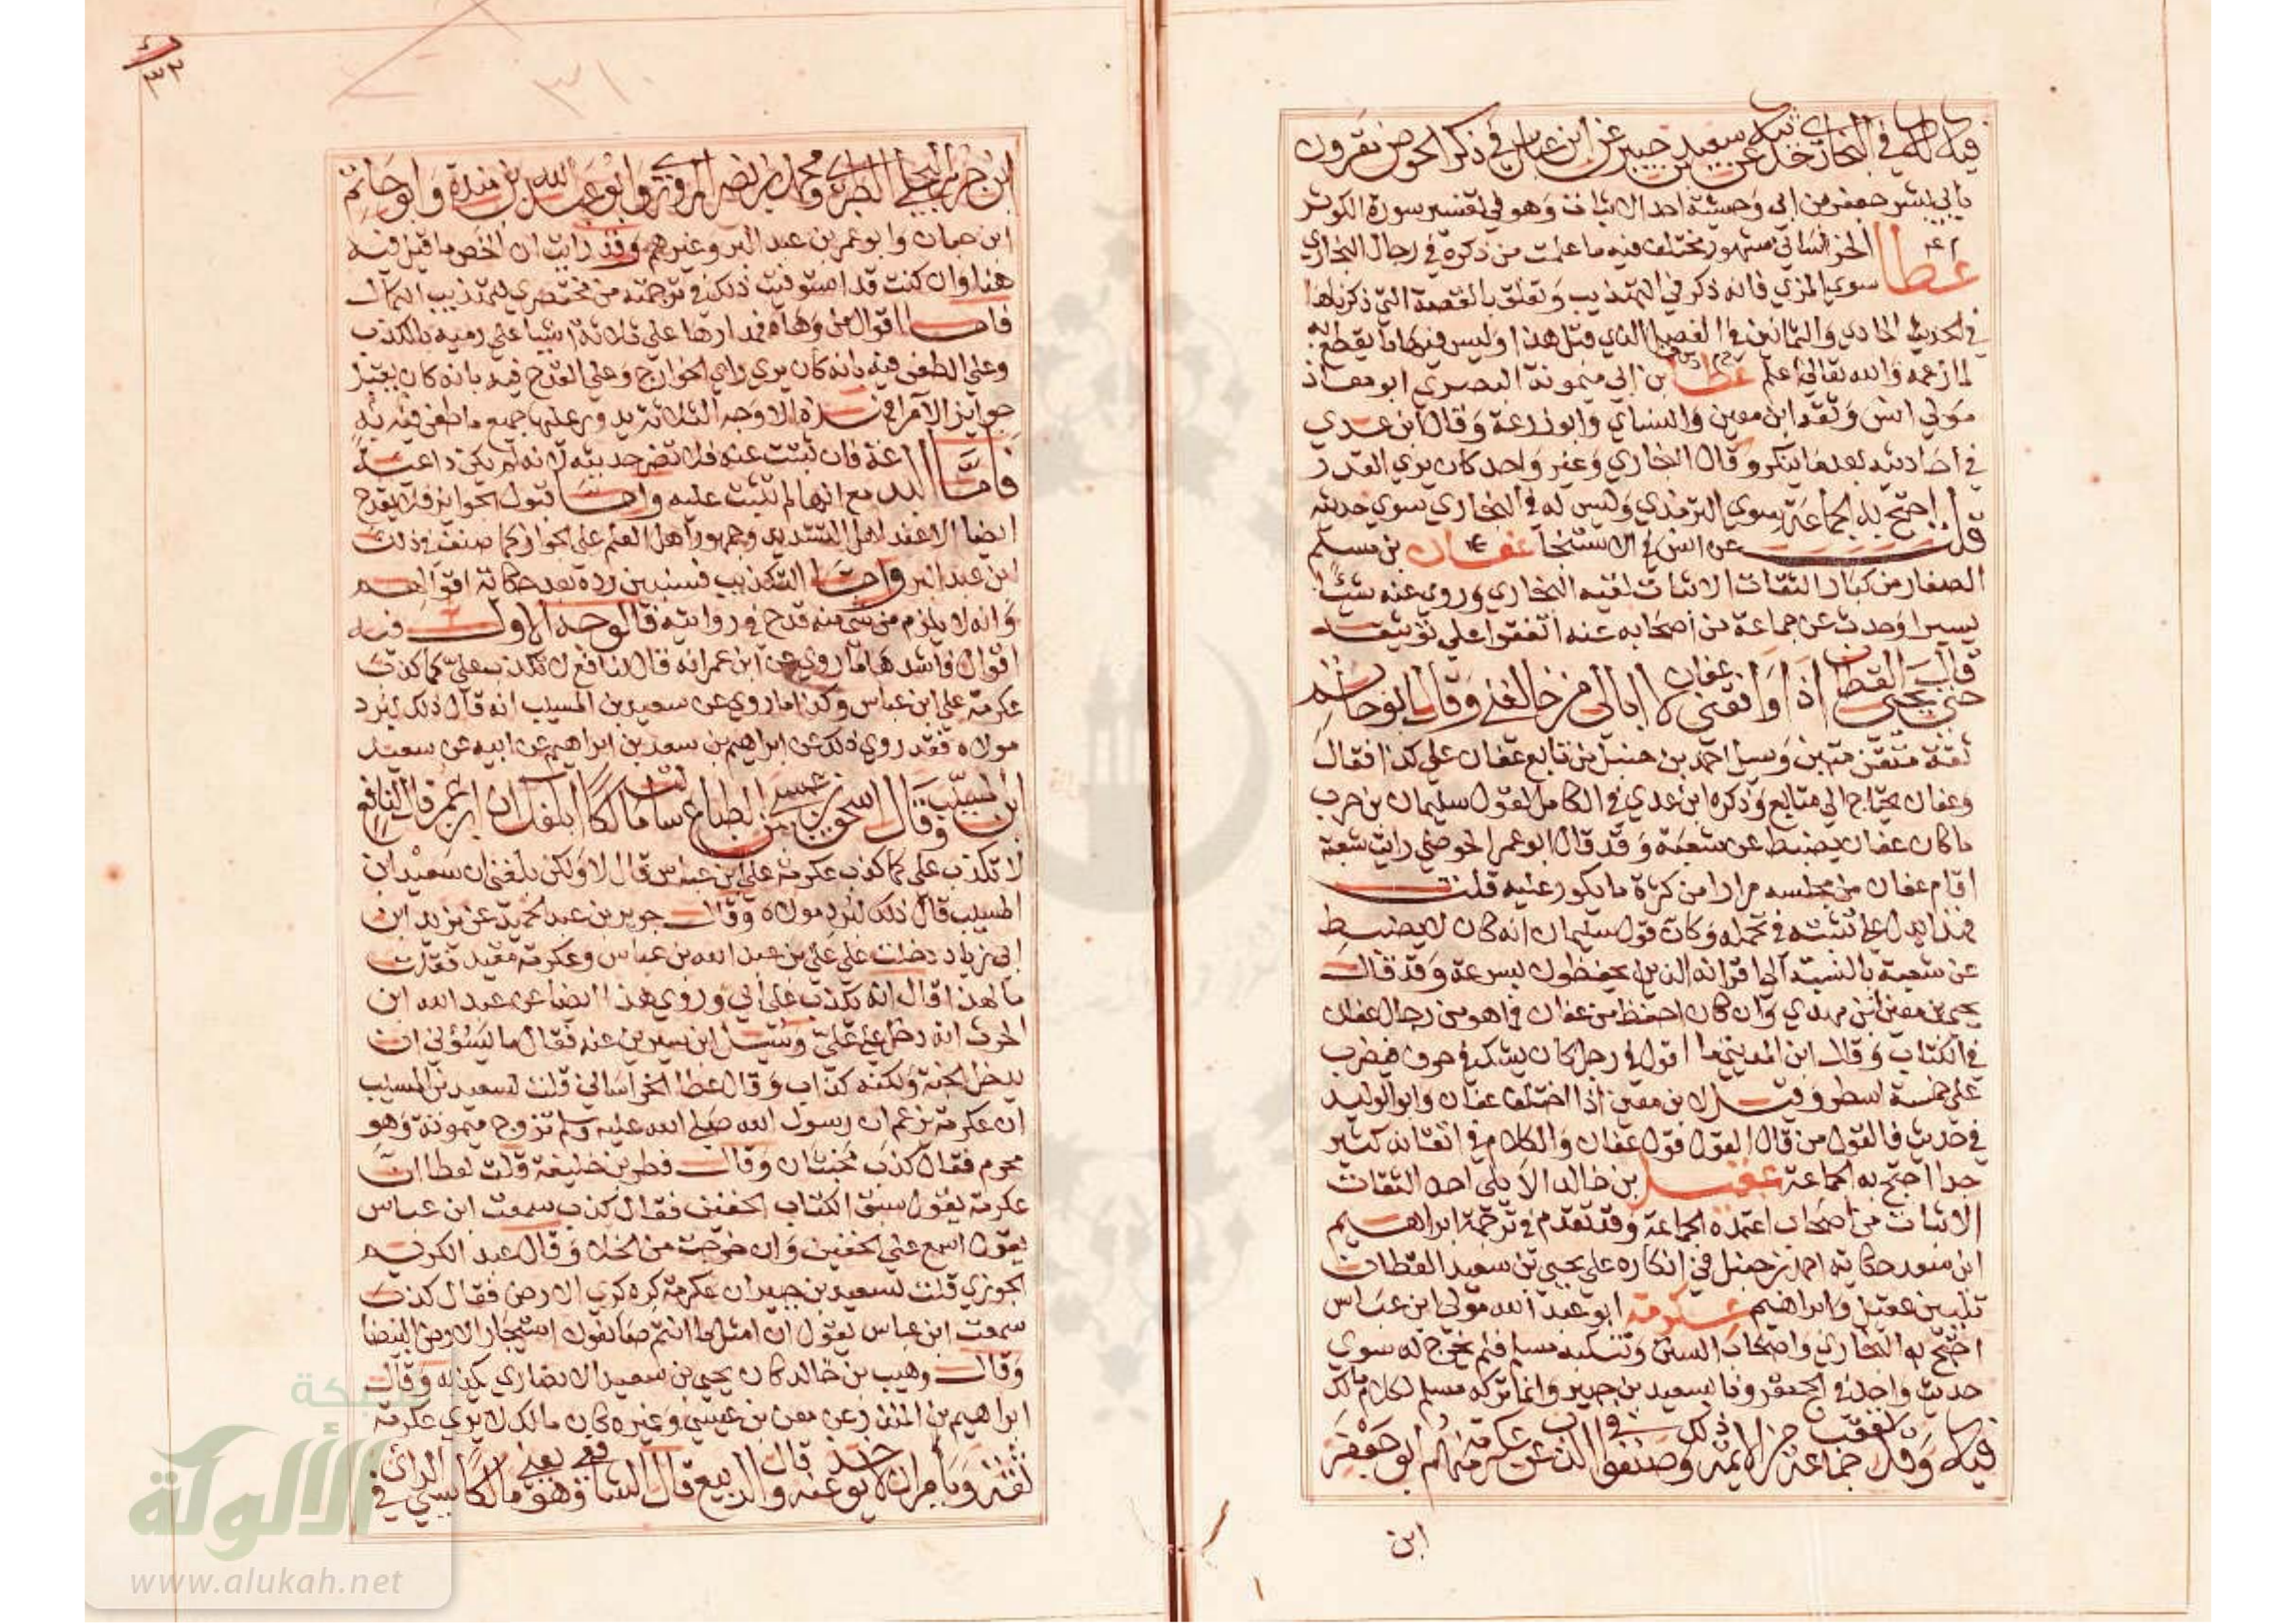 فيه له في البخاري حديثه عن سعيد بن جبير عن ابن عباس في ذكر الحوض مقرون
بابي بشر جعفر بن ابي وحشية احد الاثبات وهو في تفسير سورة الكوثر
عطا الخراساني مشهور مختلف فيه ما علمت من ذكره في رجال البخاري
سوي المزي فانه ذكره في التهذيب وتعلق بالقصة التي ذكرناها
في الحديث الحادي والثمانين في الفصل الذي قبل هذا وليس فيها ما يقطع به
لما زعمه والله تعالي اعلم عطا بن ابي ميمونة البصري ابو معاذ
مولي انس وثقه ابن معين والنساي وابو زرعة وقال ابن عدي
في احاديثه بعض ما ينكر وقال البخاري وغير واحد كان يري القدر
قلت احتج به الجماعة سوي الترمذي وليس له في البخاري سوي حديثه
عن انس في الاستنجا عفان بن مسلم
الصفار من كبار الثقات الاثبات لقيه البخاري وروي عنه شيئا
يسيرا وحدث عن جماعة من اصحابه عنه اتفقوا علي توثيقه
حتي قال يحيي القطان اذا وافقني عفان لا ابالي من خالفني وقال ابو حاتم
ثقة متقن متين وسيل احمد بن حنبل من تابع عفان علي كذا فقال
وعفان يحتاج الي متابع وذكره ابن عدي في الكامل لقول سليمان بن حرب
ما كان عفان يضبط عن شعبة وقد قال ابو عمر الحوضي رايت شعبة
اقام عفان من مجلسه مرارا من كثرة ما يكرر عليه قلت
فهذا يدل علي تثبته في تحمله وكان قول سليمان انه كان لا يضبط
عن شعبة بالنسبة الي اقرانه الذين يحفظون بسرعة وقد قال
يحيي بن معين ابن مهدي وان كان احفظ من عفان فما هو من رجال عفان
في الكتاب وقال ابن المديني ما اقول في رجل كان يشك في حرف فيضرب
علي خمسة اسطر وقيل لابن معين اذا اختلف عفان وابو الوليد
في حديث فالقول من قال القول قول عفان والكلام في اتقانه كثير
جدا احتج به الجماعة عقيل بن خالد الايلي احد الثقات
الاثبات من اصحاب اعتمده الجماعة وقد تقدم في ترجمة ابراهيم
ابن سعد حكاية احمد بن حنبل في انكاره علي يحيي بن سعيد القطان
تليين عقيل وابراهيم عكرمة ابو عبد الله مولي ابن عباس
احتج به البخاري واصحاب السنن وتنكبه مسلم فلم يخرج له سوي
حديث واحد في الحج مقرونا بسعيد بن جبير وانما تركه مسلم لكلام مالك
فيه وقد تعقب جماعة من الايمة ذلك وصنفوا في الذب عن عكرمة منهم ابو جعفر
ابن
٣١٠
ابن جرير الطبري ومحمد بن نصر المروزي وابو عبد الله بن مندة وابو حاتم
ابن حبان وابو عمر بن عبد البر وغيرهم وقد رايت ان الخص ما قيل فيه
هنا وان كنت قد استوفيت ذلك في ترجمته من مختصري لتهذيب الكمال
فاما اقوال من وهاه فمدارها علي ثلاثة اشيا علي رميه بالكذب
وعلي الطعن فيه بانه كان يري راي الخوارج وعلي القدح فيه بانه كان يقبل
جوايز الامرا فهذه الاوجه الثلاثة يدور عليها جميع ما طعن فيه به
فاما البدعة فان ثبتت عنه فلا تضر حديثه لانه لم يكن داعية
مع انها لم تثبت عليه واما قبول الجوايز فلا يقدح
ايضا الا عند اهل التشديد وجمهور اهل العلم علي الجواز كما صنف في ذلك
ابن عبد البر واما التكذيب فسنبين رده بعد حكاية اقوالهم
وانه لا يلزم من شي منه قدح في روايته فالوجه الاول فيه
اقوال فاشدها ما روي عن ابن عمر انه قال لنافع لا تكذب علي كما كذب
عكرمة علي ابن عباس وكذا ما روي عن سعيد بن المسيب انه قال ذلك لبرد
مولاه فقد روي ذلك عن ابراهيم بن سعد بن ابراهيم عن ابيه عن سعيد
ابن المسيب وقال اسحق بن عيسي بن الطباع سالت مالكا ابلغك ان ابن عمر قال لنافع
لا تكذب علي كما كذب عكرمة علي ابن عباس قال لا ولكن بلغني ان سعيد ابن
المسيب قال ذلك لبرد مولاه وقال جرير بن عبد الحميد عن يزيد ابن
ابي زياد دخلت علي علي بن عبد الله بن عباس وعكرمة مقيد فقلت
ما لهذا قال انه يكذب علي ابي وروي هذا ايضا عن عبد الله ابن
الحرث انه دخل علي علي وسيل ابن سيرين عنه فقال ما يسؤني ان
يدخل الجنة ولكنه كذاب وقال عطا الخراساني قلت لسعيد بن المسيب
ان عكرمة يزعم ان رسول الله صلي الله عليه وسلم تزوج ميمونة وهو
محرم فقال كذب مخبثان وقال فطر بن خليفة قلت لعطا ان
عكرمة يقول سبق الكتاب الخفين فقال كذب سمعت ابن عباس
يقول امسح علي الخفين وان خرجت من الخلا وقال عبد الكريم
الجزري قلت لسعيد بن جبير ان عكرمة كره كري الارض فقال كذب
سمعت ابن عباس يقول ان امثل ما انتم صانعون استيجار الارض البيضا
وقال وهيب بن خالد كان يحيي بن سعيد الانصاري يكذبه وقال
ابراهيم بن المنذر عن معن بن عيسي وغيره كان مالك لا يري عكرمة
ثقة ويامر ان لا يوخذ عنه وقال الربيع قال الشافعي وهو يعني مالكا سيي الراي في
شبكة
الألوكة
www.alukah.net